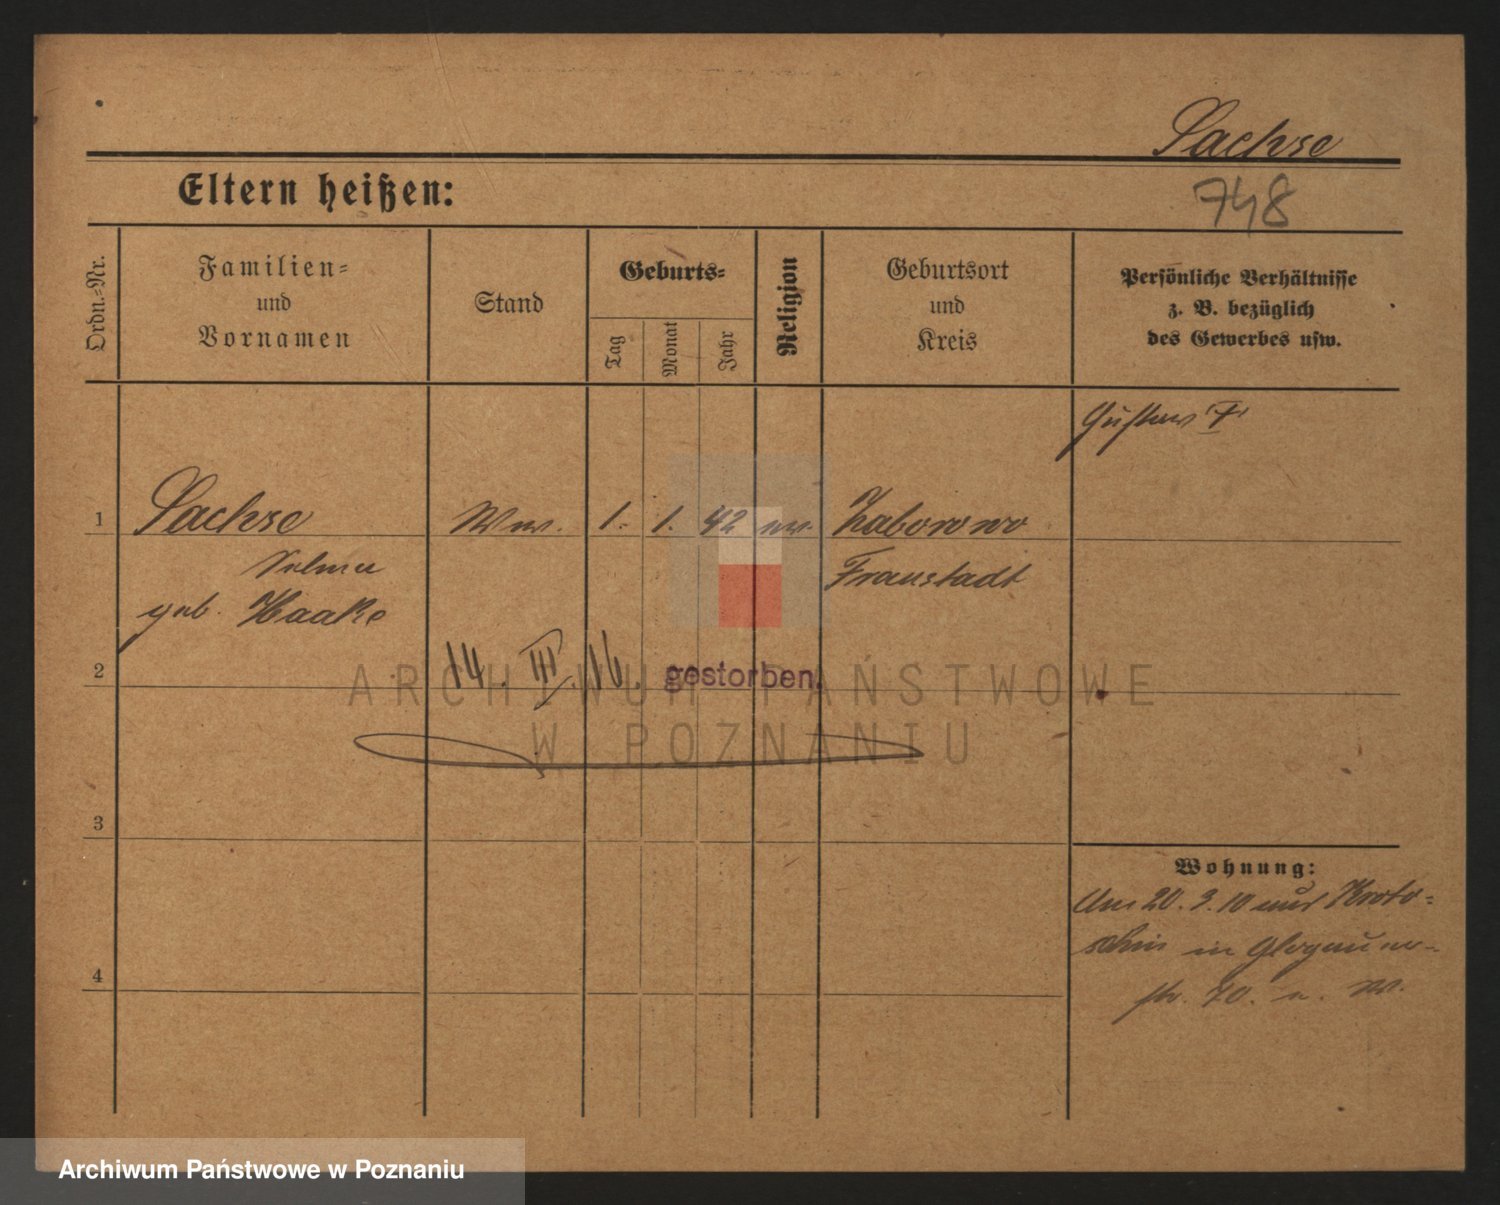 Sachse
Eltern heißen:
748
Ordn.-Nr.
Familien-
und
Vornamen
Stand
Geburts-
Tag
Monat
Jahr
Religion
Geburtsort
und
Kreis
Persönliche Verhältnisse
z. B. bezüglich
des Gewerbes usw.
Gustav †
1 Sachse Ww. 1. 1. 42 ev. Zaborowo
Selma Fraustadt
geb. Haake
2 14. III. 16. gestorben.
3
4
Wohnung:
Am 20. 3. 10 aus Kroto-
schin in Glogauer-
str.
ARCHIWUM PAŃSTWOWE
W POZNANIU
Archiwum Państwowe w Poznaniu